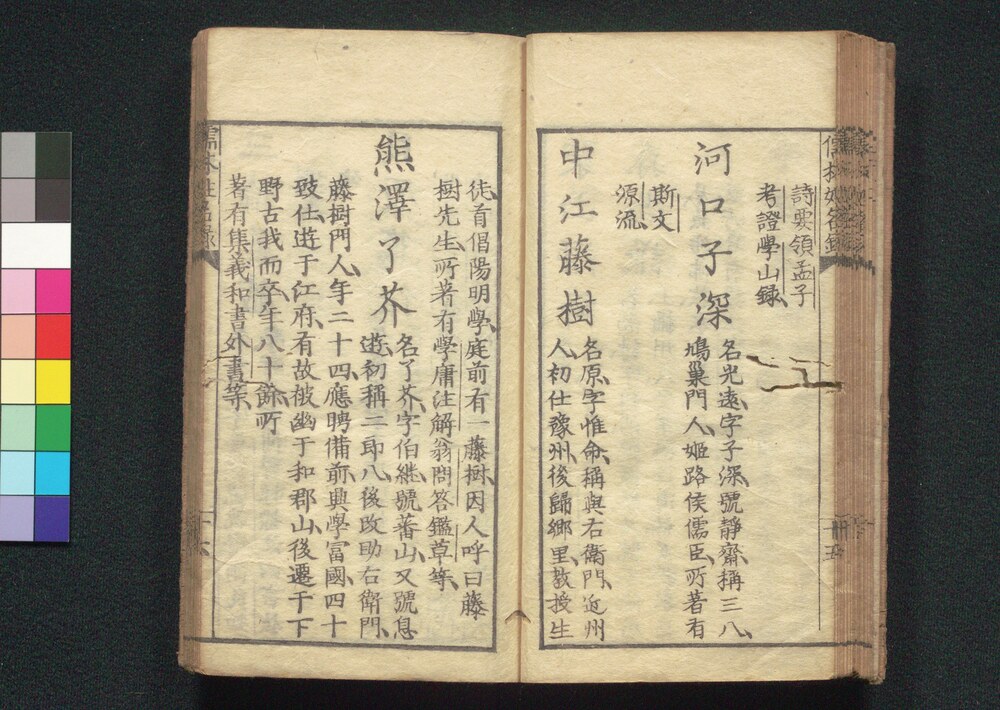 詩要領孟子
考證學山錄
河口子深
名光遠字子深號靜齋稱三八
鳩巢門人姬路侯儒臣所著有
斯文
源流
中江藤樹
名原字惟命稱與右衛門近州
人初仕豫州後歸鄉里教授生
徒首倡陽明學庭前有一藤樹因人呼曰藤
樹先生所著有學庸注解翁問答鑑草等
熊澤了芥
名了芥字伯継號蕃山又號息
遊初稱二郎八後改助右衛門
藤樹門人年二十四應聘備前興學富國四十
致仕遊于江府有故被幽于和郡山後遷于下
野古我而卒年八十餘所
著有集義和書外書等
儒林姓名錄